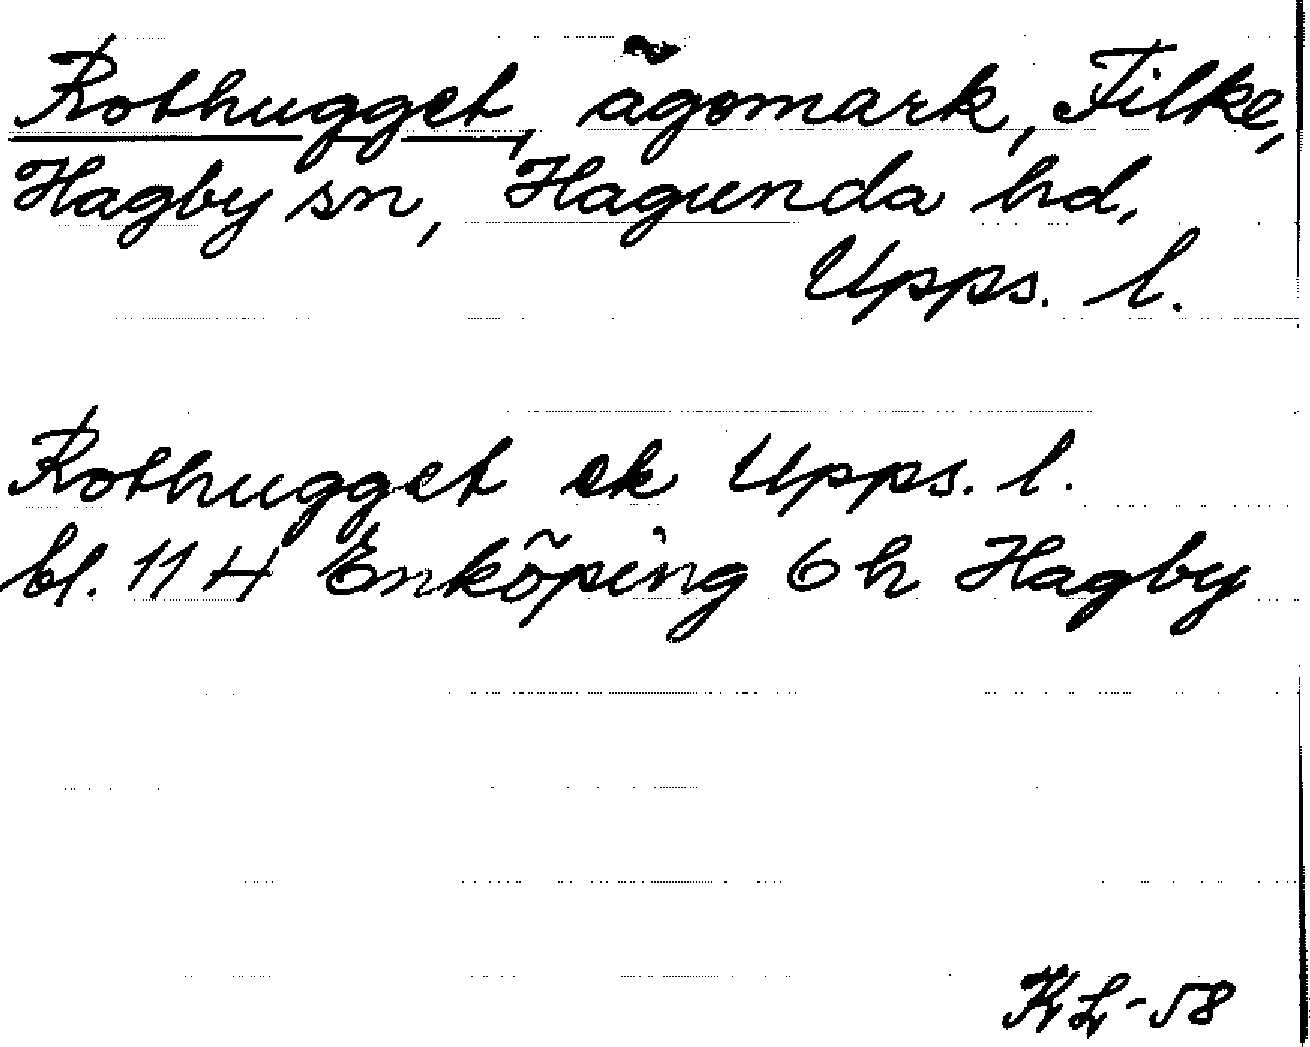 Rothugget, ägomark, Filke,
Hagby sn, Hagunda hd,
Upps. l.
Rothugget ek Upps. l.
bl. 11 H Enköping 6 h Hagby
KL-58